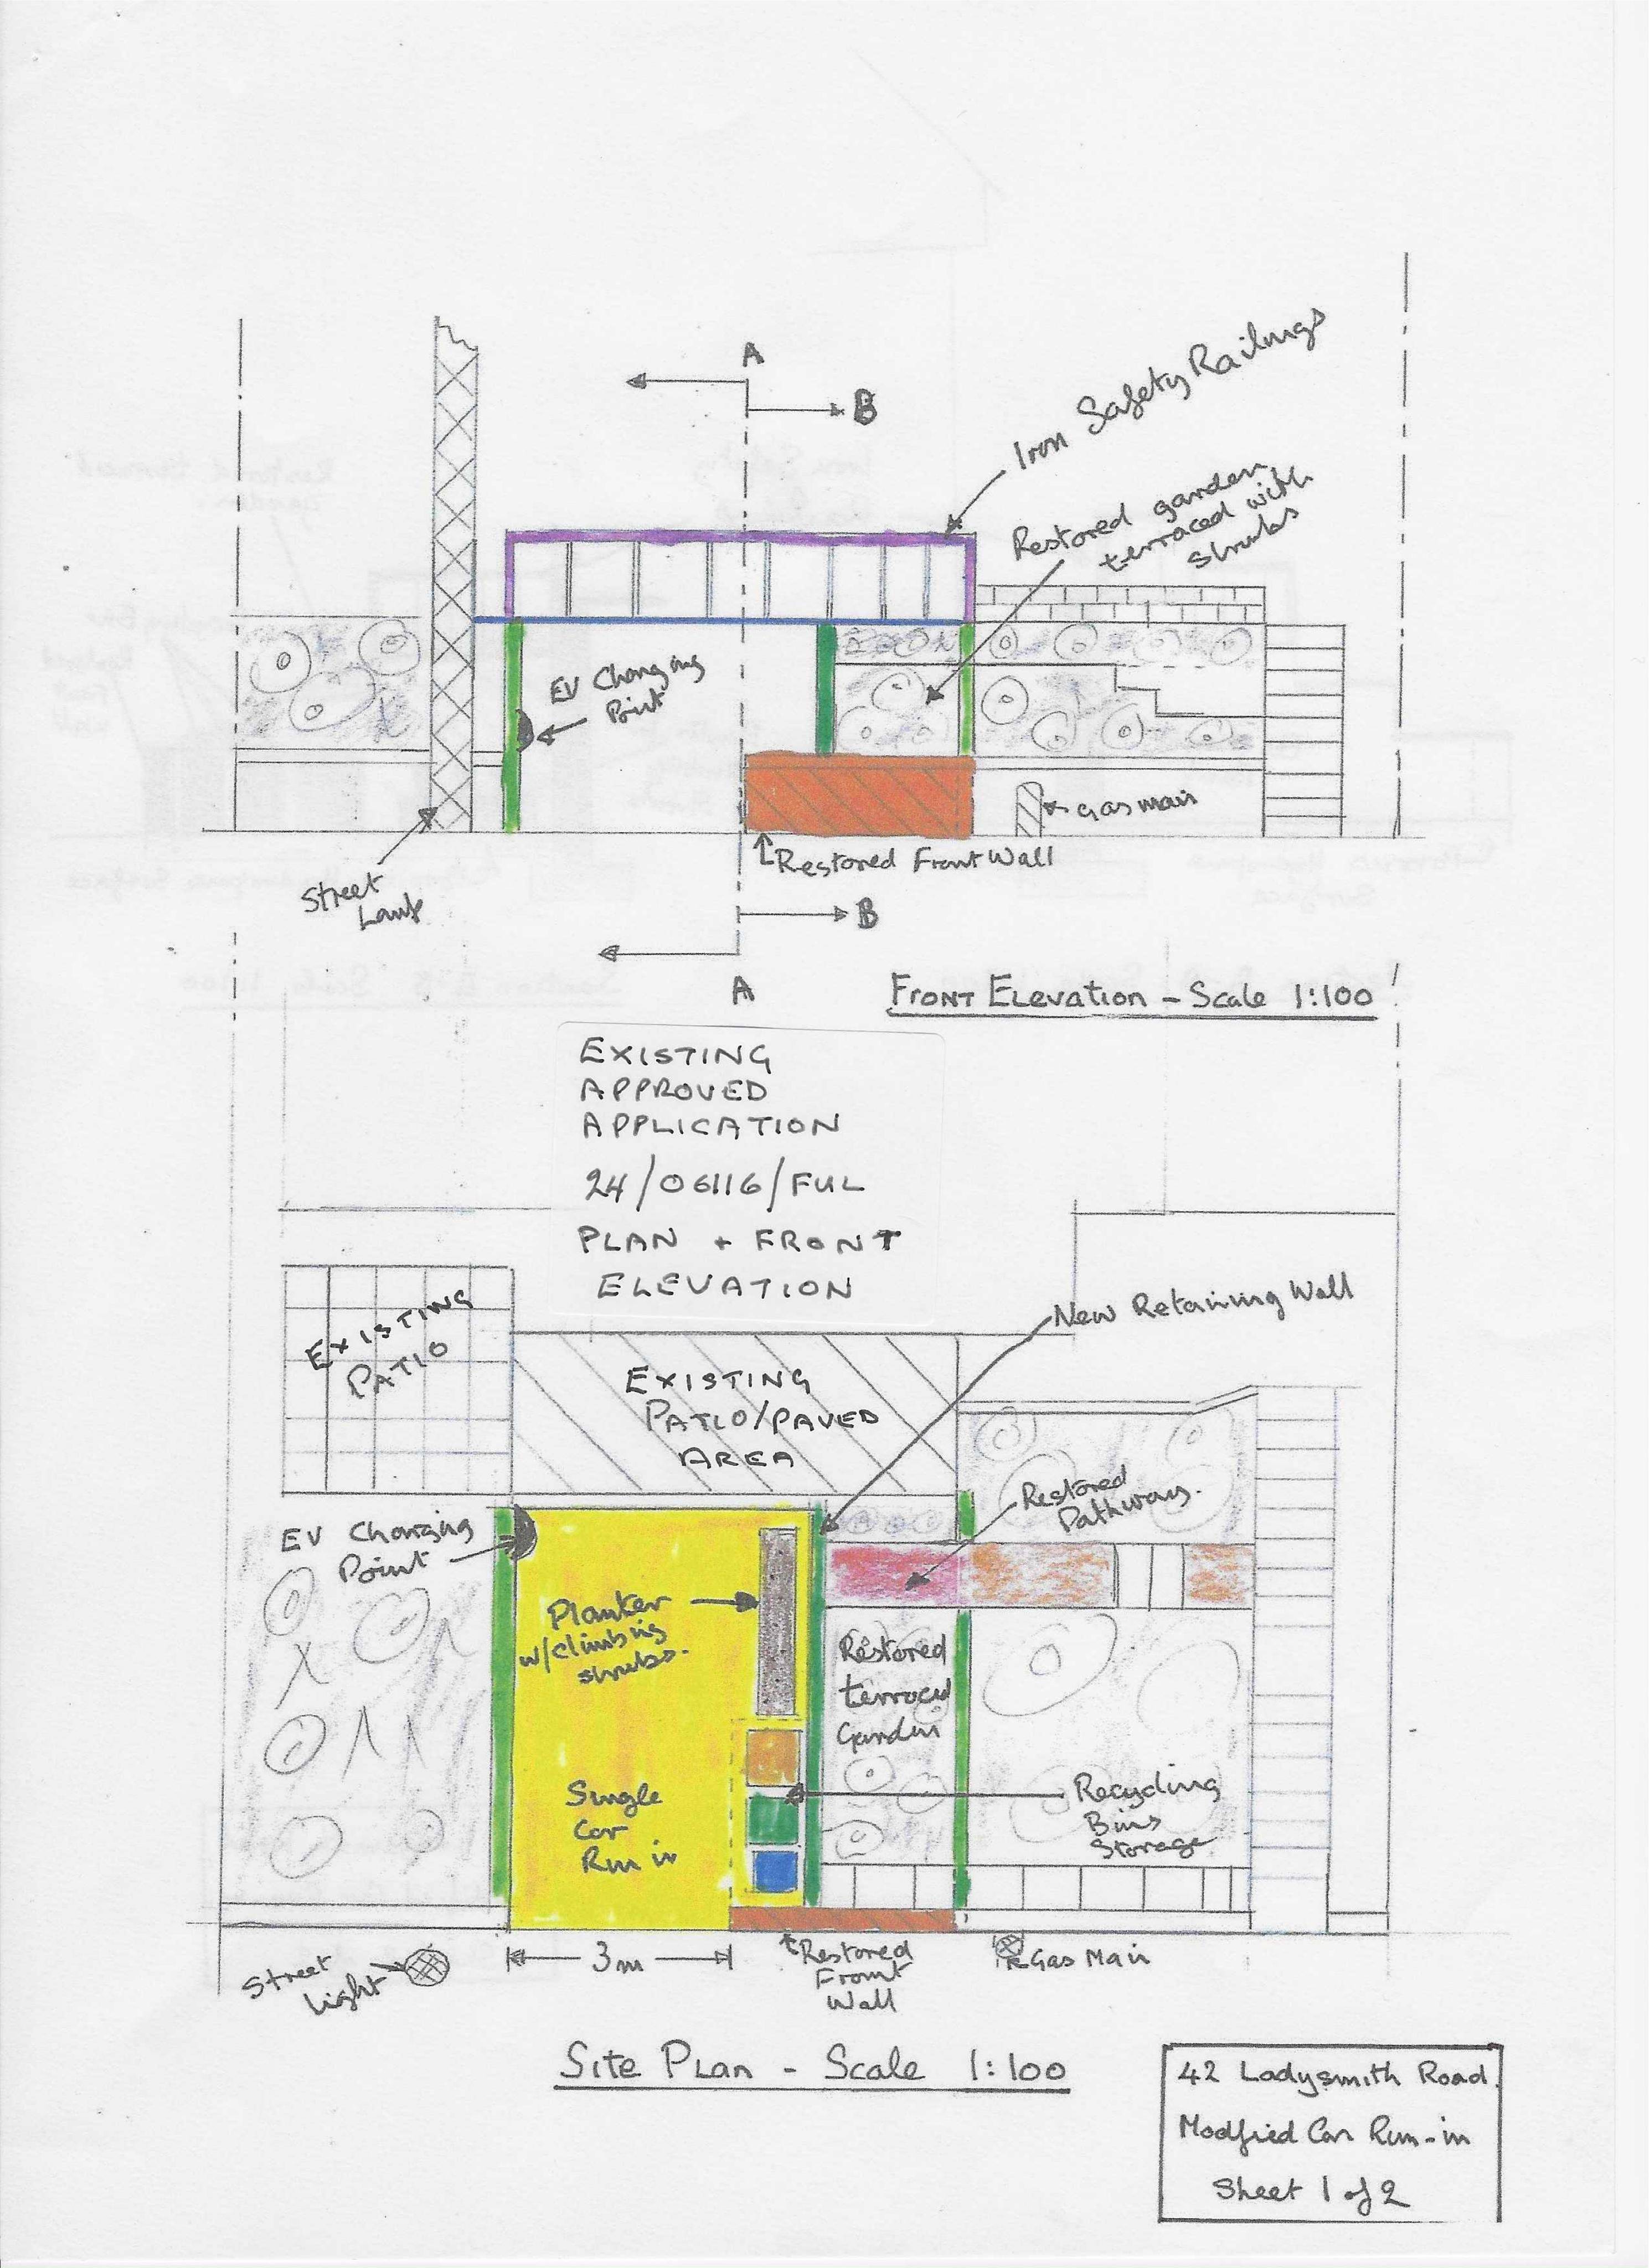 A
B
Iron Safety Railings
Restored garden
terraced with
shrubs
EV Charging
Point
Gas main
Restored Front Wall
Street
Lamp
B
A
FRONT ELEVATION - Scale 1:100
EXISTING
APPROVED
APPLICATION
24/06116/FUL
PLAN + FRONT
ELEVATION
New Retaining Wall
EXISTING
PATIO
EXISTING
PATIO/PAVED
AREA
Restored
Pathways.
EV Charging
Point
Planter
w/climbing
shrubs.
Restored
terraced
Garden
Single
Car
Run in
Recycling
Bins
Storage
Street
Light
3m
Restored
Front
Wall
Gas Main
SITE PLAN - Scale 1:100
42 Ladysmith Road.
Modfied Car Run-in
Sheet 1 of 2